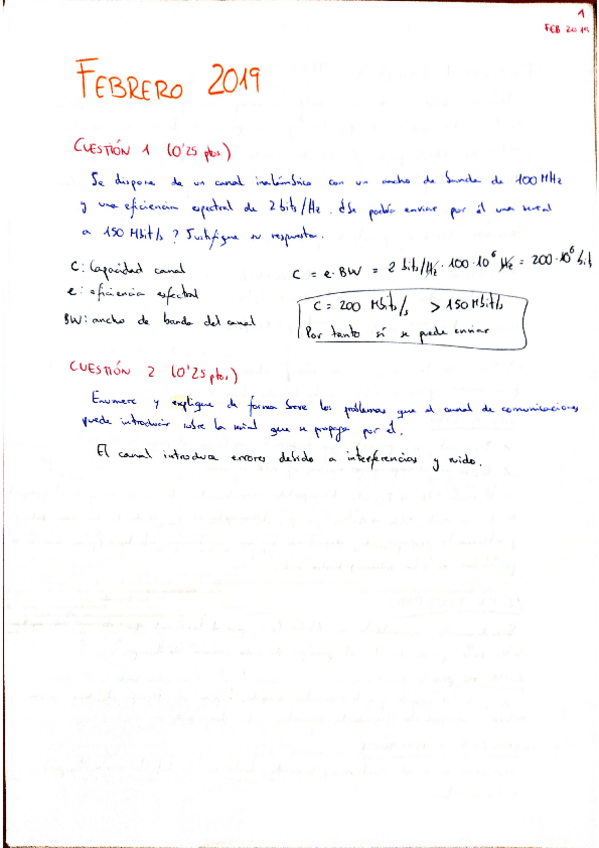 1
FEB 2019
FEBRERO 2019
CUESTIÓN 1 (0'25 ptos.)
Se dispone de un canal inalámbrico con un ancho de banda de 100 MHz
y una eficiencia espectral de 2 bits/Hz. ¿Se podría enviar por él una señal
a 150 Mbit/s? Justifique su respuesta.
C: Capacidad canal
e: eficiencia espectral
BW: ancho de banda del canal
C = e · BW = 2 bits/Hz · 100·10⁶ Hz = 200·10⁶ bit
C = 200 Mbits/s > 150 Mbit/s
Por tanto sí se puede enviar
CUESTIÓN 2 (0'25 ptos.)
Enumere y explique de forma breve los problemas que el canal de comunicaciones
puede introducir sobre la señal que se propaga por él.
El canal introduce errores debido a interferencias y ruido.